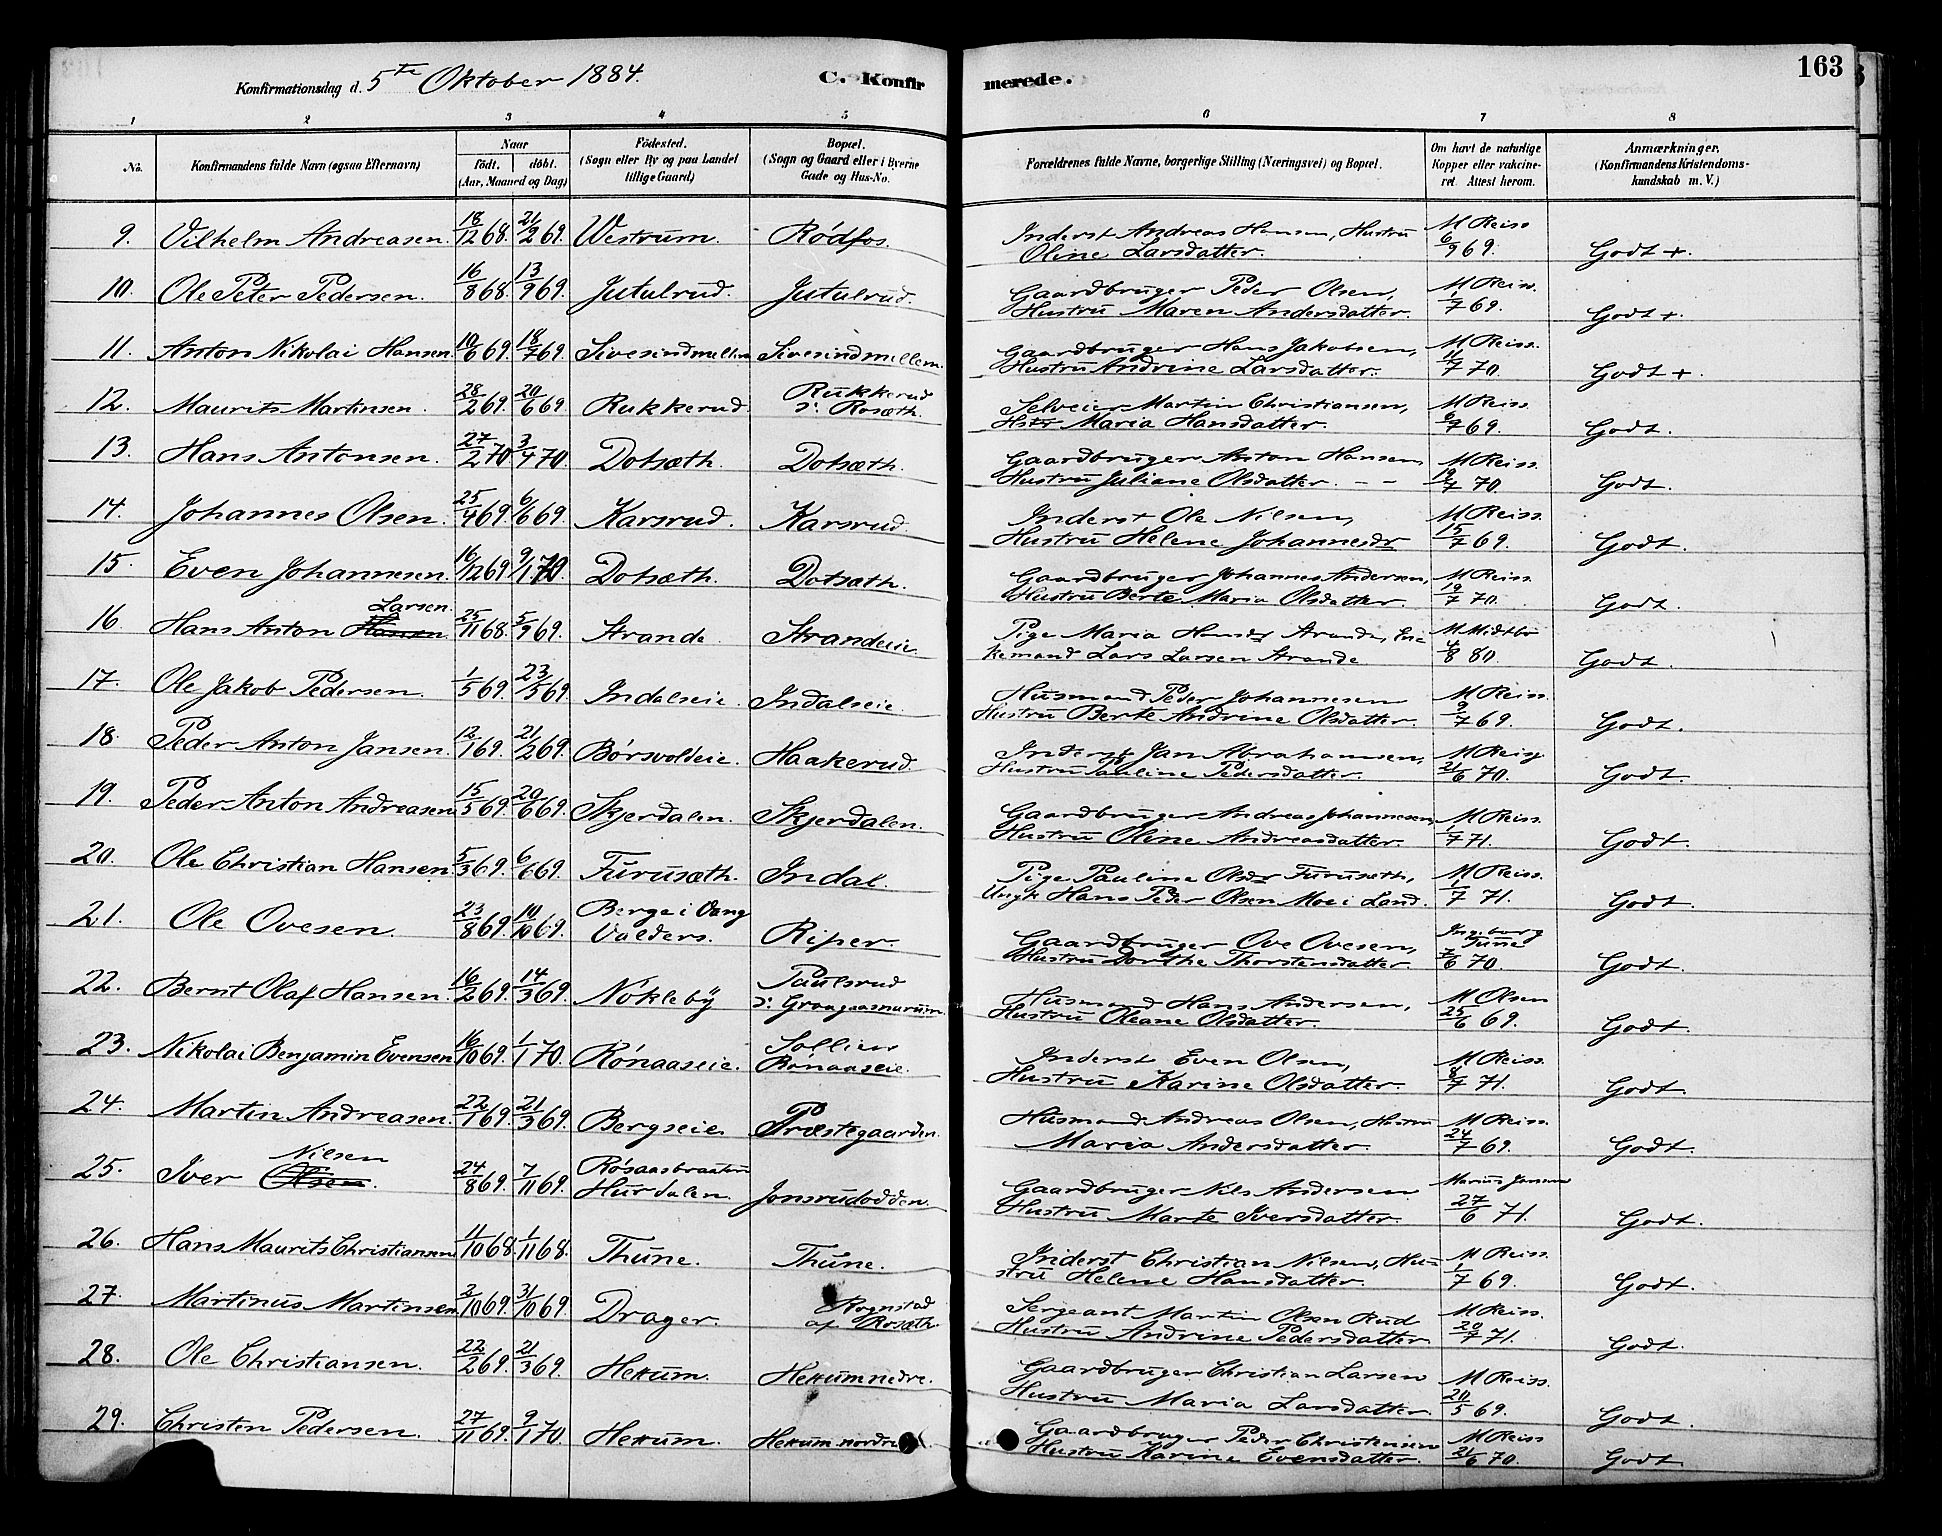 Konfirmationsdag d. 5te Oktober 1884. C. Konfirmerede. 163
1 2 3 4 5 6 7 8
No. Konfirmandens fulde Navn (ogsaa Efternavn) Naar født. døbt. (Aar, Maaned og Dag) Fødested. (Sogn eller By og paa Landet tillige Gaard) Bopæl. (Sogn og Gaard eller i Byerne Gade og Hus-No. Forældrenes fulde Navne, borgerlige Stilling (Næringsvei) og Bopæl. Om havt de naturlige Kopper eller vakcineret. Attest herom. Anmærkninger. (Konfirmandens Kristendomskundskab m. V.)
9. Vilhelm Andreasen. 18/12 68. 21/2 69. Westrum. Rödfos. Inderst Andreas Hansen, Hustru Oline Larsdatter. M Reiss 6/9 69. Godt +.
10. Ole Peter Pedersen. 16/8 68. 13/9 69. Jutulrud. Jutulrud. Gaardbruger Peder Olsen, Hustru Maren Andersdatter. M Reiss. 1/7 69. Godt +
11. Anton Nikolai Hansen 10/6 69. 18/7 69. Sivesindmellem Sivesindmellem. Gaardbruger Hans Jakobsen, Hustru Andrine Larsdatter. M Reiss. 11/7 70. Godt +.
12. Maurits Martinsen. 28/2 69. 20/6 69 Rukkerud Rukkerud s: Rosæth. Selveier Martin Christiansen, Hstr Maria Hansdatter. M Reiss. 6/7 69. Godt.
13. Hans Antonsen. 27/2 70 3/4 70. Dotsæth. Dotsæth. Gaardbruger Anton Hansen, Hustru Juliane Olsdatter. - - M Reiss. 19/7 70. Godt.
14. Johannes Olsen. 25/4 69. 6/6 69. Karsrud. Karsrud. Inderst Ole Nilsen, Hustru Helene Johannesdr M Reiss. 15/7 69. Godt.
15. Even Johannesen. 16/12 69. 9/1 70. Dotsæth. Dotsæth. Gaardbruger Johannes Andersen, Hustru Berte Maria Olsdatter. M Reiss. 19/7 70. Godt.
16. Hans Anton Hansen Larsen. 25/11 68. 5/9 69. Strande. Strandeie. Pige Maria Hansdr Strande, Enkemand Lars Larsen Strande M Midtbö 4/8 80. Godt.
17. Ole Jakob Pedersen. 1/5 69. 23/5 69. Indalseie. Indalseie. Husmand Peder Johannesen Hustru Berte Andrine Olsdatter. M Reiss. 9/7 69. Godt.
18. Peder Anton Jansen. 12/1 69. 21/2 69. Börsvoldeie. Haakerud. Inderst Jan Abrahamsen, Hustru Pauline Pedersdatter. M Reiss 21/6 70. Godt.
19. Peder Anton Andreasen 15/5 69. 20/6 69. Skjerdalen. Skjerdalen. Gaardbruger Andreas Johannesen, Hustru Oline Andreasdatter. M Reiss. 1/7 71. Godt.
20. Ole Christian Hansen. 5/3 69. 6/6 69. Furusæth. Indal. Pige Pauline Olsdr Furusæth, Ungk Hans Peder Olsen Moe i Land. M Reiss. 1/7 71. Godt.
21. Ole Ovesen. 23/8 69. 10/10 69. Berge i Vang Valders. Riper. Gaardbruger Ove Ovesen, Hustru Dorthe Thorstensdatter. Ingeborg Tune 7/6 70. Godt.
22. Bernt Olaf Hansen. 16/2 69. 14/3 69. Nökleby Paulsrud s: Graagaasmarum. Husmand Hans Andersen, Hustru Oleane Olsdatter. M Olsen 25/6 69. Godt.
23. Nikolai Benjamin Evensen 16/10 69. 1/1 70. Rönaaseie. Sollien Rönaaseie. Inderst Even Olsen, Hustru Karine Olsdatter. M Reiss. 8/7 71. Godt.
24. Martin Andreasen. 22/1 69. 21/3 69. Bergseie Præstegaarden. Husmand Andreas Olsen, Hustru Maria Andersdatter. M Reiss. 24/7 69. Godt.
25. Iver Olsen. Nilsen 24/8 69. 7/11 69. Rösaasbraaten Hurdalen. Jonsrudodden. Gaardbruger Nils Andersen Hustru Marte Iversdatter. Marius Jansen 27/6 71. Godt.
26. Hans Maurits Christiansen 11/10 68. 1/11 68. Thune. Thune. Inderst Christian Nilsen, Hustru Helene Hansdatter. M Reiss. 1/7 69. Godt.
27. Martinus Martinsen 3/10 69. 31/10 69. Drager. Rognstad af Rosæth. Sergeant Martin Olsen Rud Hustru Andrine Pedersdatter. M Reiss. 20/7 71. Godt.
28. Ole Christiansen. 22/2 69. 21/3 69. Hekkum. Hekkum nedre. Gaardbruger Christian Larsen Hustru Maria Larsdatter. M Reiss. 20/5 69. Godt.
29. Christen Pedersen. 27/11 69. 9/1 70. Hekkum. Hekkum nordre Gaardbruger Peder Christensen Hustru Karine Evensdatter. M Reiss 21/6 70. Godt.